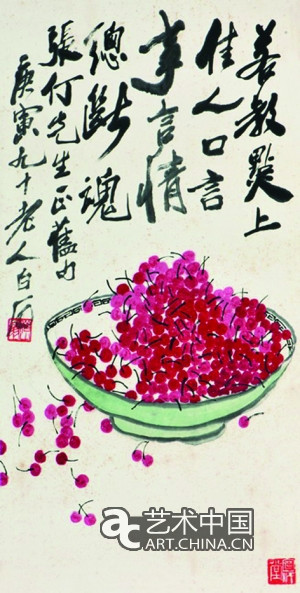 若教點上
佳人口言
事言情
總斷魂
張仃先生正舊句
庚寅九十老人白石
ac 艺术中国
ART.CHINA.CN